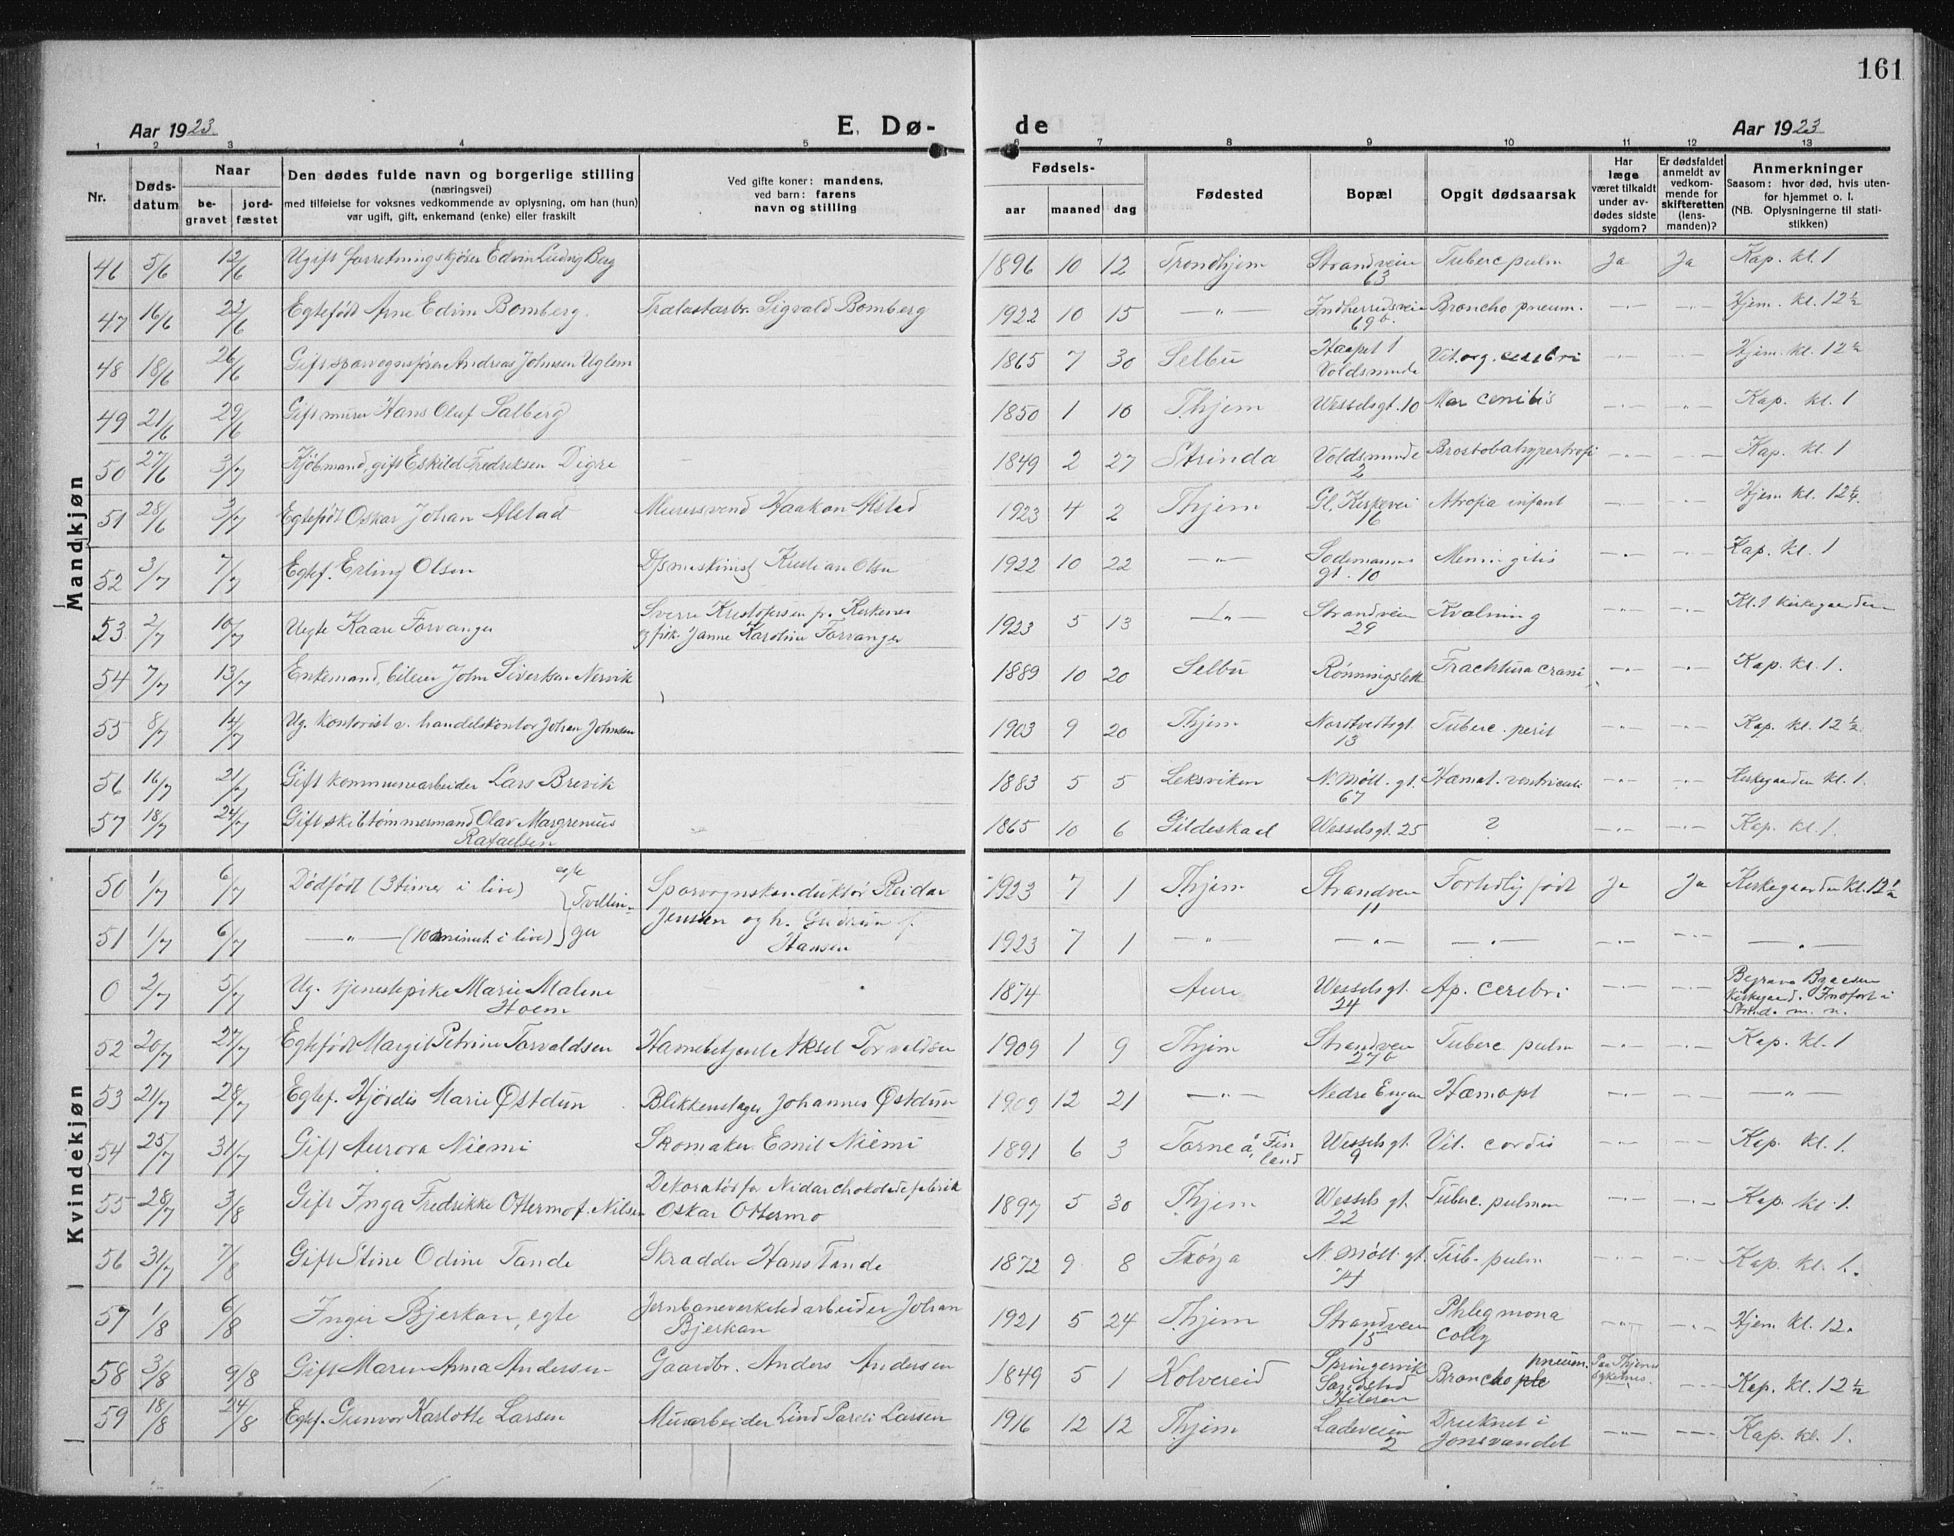 161
Aar 1923
E. Dø-
de
Aar 1923
1 2 3 4 5 6 7 8 9 10 11 12 13
Nr.
Døds-
datum
Naar
be-
gravet
jord-
fæstet
Den dødes fulde navn og borgerlige stilling
(næringsvei)
med tilføielse for voksnes vedkommende av oplysning, om han (hun)
var ugift, gift, enkemand (enke) eller fraskilt
Ved gifte koner: mandens,
ved barn: farens
navn og stilling
Fødsels-
aar
maaned
dag
Fødested
Bopæl
Opgit dødsaarsak
Har
læge
været tilkaldt
under av-
dødes sidste
sygdom?
Er dødsfaldet
anmeldt av
vedkom-
mende for
skifteretten
(lens-
manden)?
Anmerkninger
Saasom: hvor død, hvis uten-
for hjemmet o. l.
(NB. Oplysningerne til stati-
stikken)
Mandkjøn
46 5/6 12/6 Ugift forretningskjører Edvin Ludvig Berg 1896 10 12 Trondhjem Strandveien 63 Tuberc pulm Ja Ja Kap. kl. 1
47 16/6 22/6 Egtefødt Arne Edvin Bomberg Trælastarbr. Sigvald Bomberg 1922 10 15 —"— Indherredsveien 69b. Broncho pneum. —"— —"— Hjem. kl. 12 ½
48 18/6 26/6 Gift sporvognsfører Andreas Johnsen Uglem 1865 7 30 Selbu Voldsminde Vit. org. cerebri —"— —"— Hjem. kl. 12 ½
49 21/6 29/6 Gift murer Hans Oluf Salberg 1850 1 10 Thjem Wesselsgt. 10 —"— —"— Kap. kl. 1
50 27/6 3/7 Kjøbmand, gift Eskild Fredriksen Digre 1849 2 27 Strinda Voldsminde 2 Brostobahypertrofi —"— —"— Kap. kl. 1
51 28/6 3/7 Egtefødt Oskar Johan Alstad Murersvend Haakon Alstad 1923 4 2 Thjem Gl. Kirkevei 16 Atrofia infant —"— —"— Hjem kl. 12 ½
52 3/7 7/7 Egtef. Erling Olsen Dpsmaskinist Kristian Olsen 1922 10 22 —"— Sodemannsgt. 10 Meningitis —"— —"— Kap. kl. 1
53 2/7 10/7 Uegte Kaare Forvanger Sverre Kristofersen fr. Kirkenes
og frk. Janne Karoline Forvanger 1923 5 13 —"— Strandveien 29 Kvælning —"— —"— Kl. 1 kirkegaarden
54 7/7 13/7 Enkemand, bileier John Sivertsen Nervik 1889 10 20 Selbu Rønningslett Frachtura crani —"— —"— Kap. kl. 1.
55 8/7 14/7 Ug. kontorist v. handelskontor Johan Johnsen 1903 9 20 Thjem 13 Tuberc. perit —"— —"— Kap. kl. 12 ½
56 16/7 21/7 Gift kommunearbeider Lars Brevik 1883 5 5 Leksviken N. Møll. gt. 67 Hæmat. ventriculi —"— —"— Kirkegaarden kl. 1.
57 18/7 24/7 Gift skibtømmermand Olav Margrenius
Rafaelsen 1865 10 6 Gildeskaal Wesselsgt. 25 ? —"— —"— Kap. kl. 1.
Kvindekjøn
50 1/7 6/7 Dødfødt (3 timer i live) egte } Tvillin- Sporvognskonduktør Reidar 1923 7 1 Thjem Strandveien 11 Fortidlig født Ja Ja Kirkegaarden kl. 12 ½
51 1/7 6/7 —"— (10 minut. i live) } ger Jensen og h. Gudrun f.
Hansen 1923 7 1 —"— —"— —"— —"— —"— —"—
0 2/7 5/7 Ug. tjenestepike Marie Malene
Hoem 1874 Aure Wesselsgt. 24 Ap. cerebri —"— —"— Begrave
Kirkegaard. Indført i
Strinda m. n.
52 20/7 27/7 Egtefødt Margit Petrine Torvaldsen Havnebetjent Aksel Torvaldsen 1909 1 9 Thjem Strandveien 27b Tuberc pulm —"— —"— Kap. kl. 1
53 21/7 28/7 Egtef. Hjørdis Marie Østdun Blikkenslager Johannes Østdun 1909 12 21 —"— Nedre Hæmopt —"— —"— —"—
54 25/7 31/7 Gift Aurora Niemi Skomaker Emil Niemi 1891 6 3 Torneå, Finland Wesselsgt. 9 Vit. cordis —"— —"— Kap. kl. 1.
55 28/7 3/8 Gift Inga Fredrikke Ottermo f. Nilsen Dekoratør for Nidar chokoladefabrik
Oskar Ottermo 1897 5 30 Thjem Wessels gt. 22 Tuberc. pulmon —"— —"— Kap. kl. 1.
56 31/7 7/8 Gift Stine Odine Tande Skrædder Hans Tande 1872 9 8 Frøya N. Møll. gt. 14 Tub. pulm —"— —"— Kap. kl. 1.
57 1/8 6/8 Inger Bjerkan, egte Jernbaneverkstedarbeider Johan
Bjerkan 1921 5 24 Thjem Strandveien 15 Phlegmona
colly —"— —"— Hjem kl. 12.
58 3/8 9/8 Gift Maren Anna Andersen Gaardbr. Anders Andersen 1849 5 1 Kolvereid Springervik Broncho pneum. —"— Kap. kl. 12 ½
59 18/8 24/8 Egtef. Gunvor Karlotte Larsen Murarbeider Lind Pareli Larsen 1916 12 12 Thjem Ladeveien 2 Druknet i
Jonsvandet —"— —"— Kap. kl. 1.